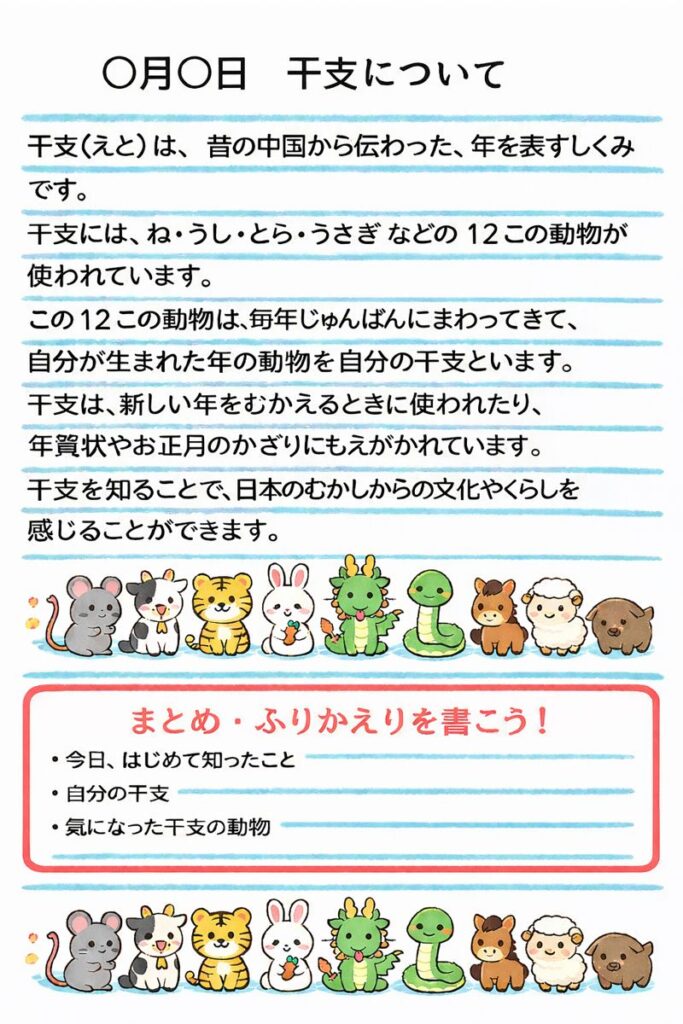 〇月〇日　干支について
干支(えと)は、昔の中国から伝わった、年を表すしくみ
です。
干支には、ね・うし・とら・うさぎ などの 12この動物が
使われています。
この12この動物は、毎年じゅんばんにまわってきて、
自分が生まれた年の動物を自分の干支といます。
干支は、新しい年をむかえるときに使われたり、
年賀状やお正月のかざりにもえがかれています。
干支を知ることで、日本のむかしからの文化やくらしを
感じることができます。
まとめ・ふりかえりを書こう！
・今日、はじめて知ったこと
・自分の干支
・気になった干支の動物